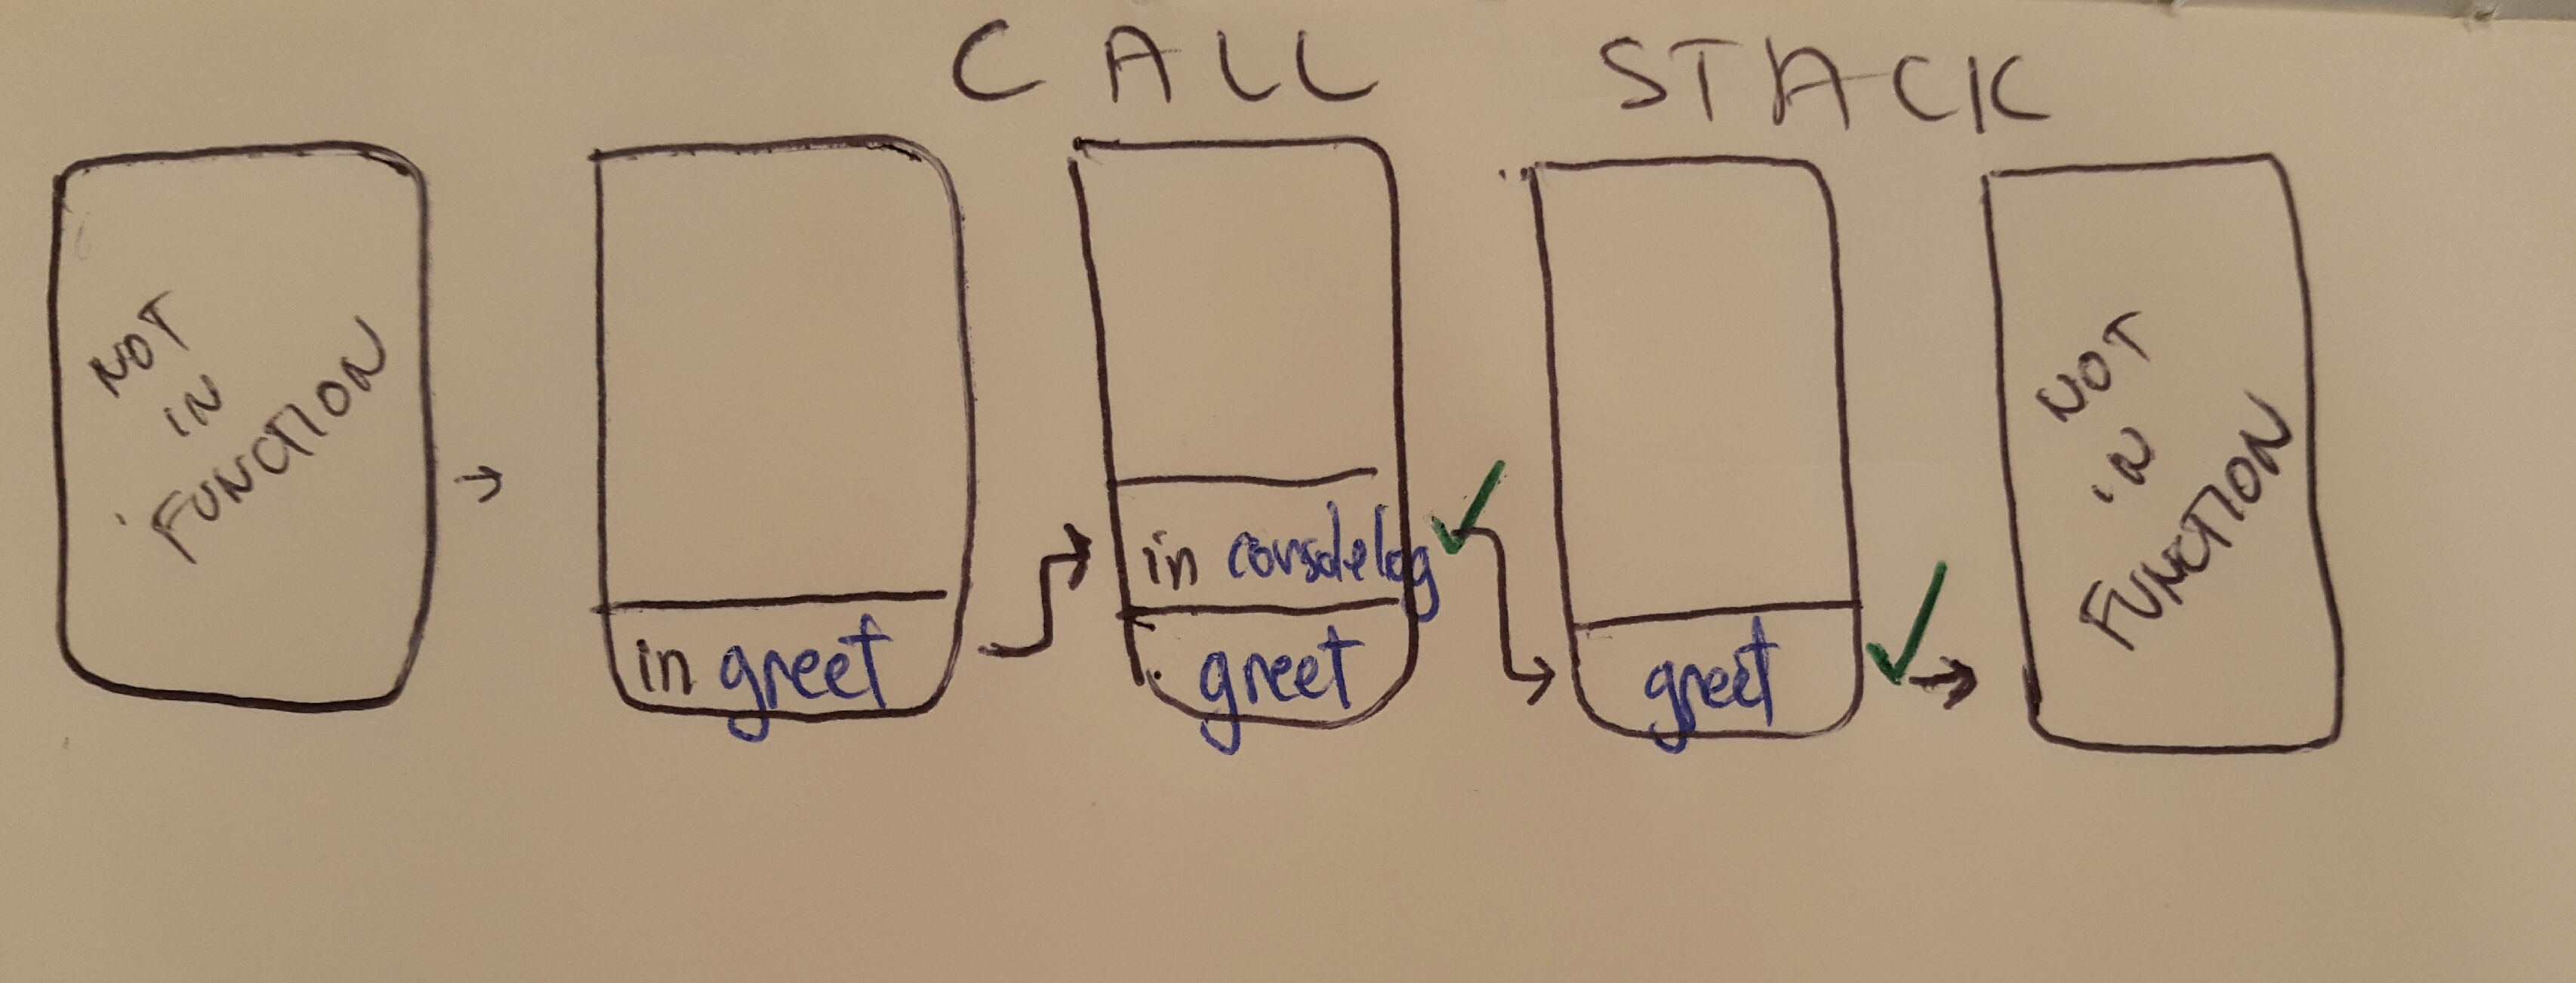 CALL STACK
NOT
IN
FUNCTION
in greet
in consolelog
greet
greet
NOT
IN
FUNCTION